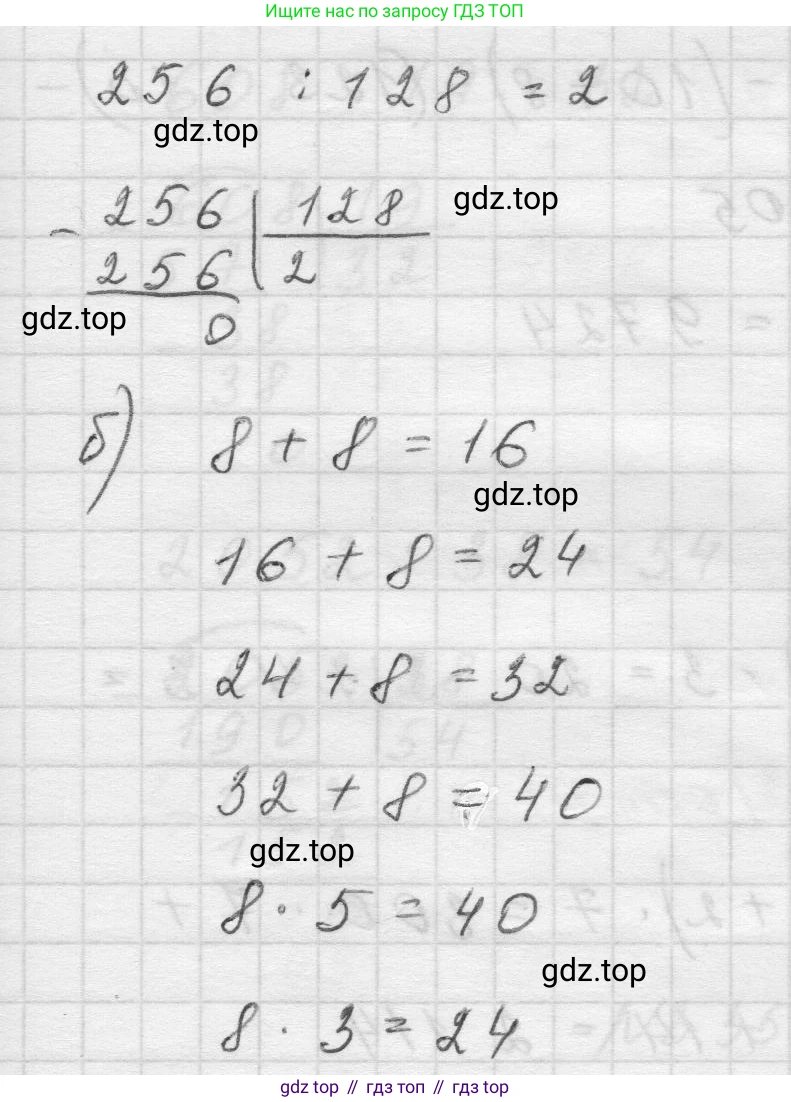 Ищите нас по запросу ГДЗ ТОП
256 : 128 = 2
gdz.top
- 256 | 128
gdz.top
256 | 2
gdz.top
0
б) 8 + 8 = 16
gdz.top
16 + 8 = 24
24 + 8 = 32
32 + 8 = 40
gdz.top
8 · 5 = 40
gdz.top
8 · 3 = 24
gdz top // гдз топ // gdz top